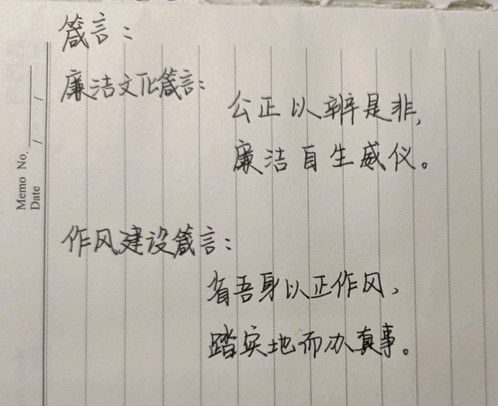 箴言：
廉洁文化箴言：
公正以辨是非，
廉洁自生威仪。
作风建设箴言：
省吾身以正作风、
踏实地而办真事。
Memo No.
Date / /